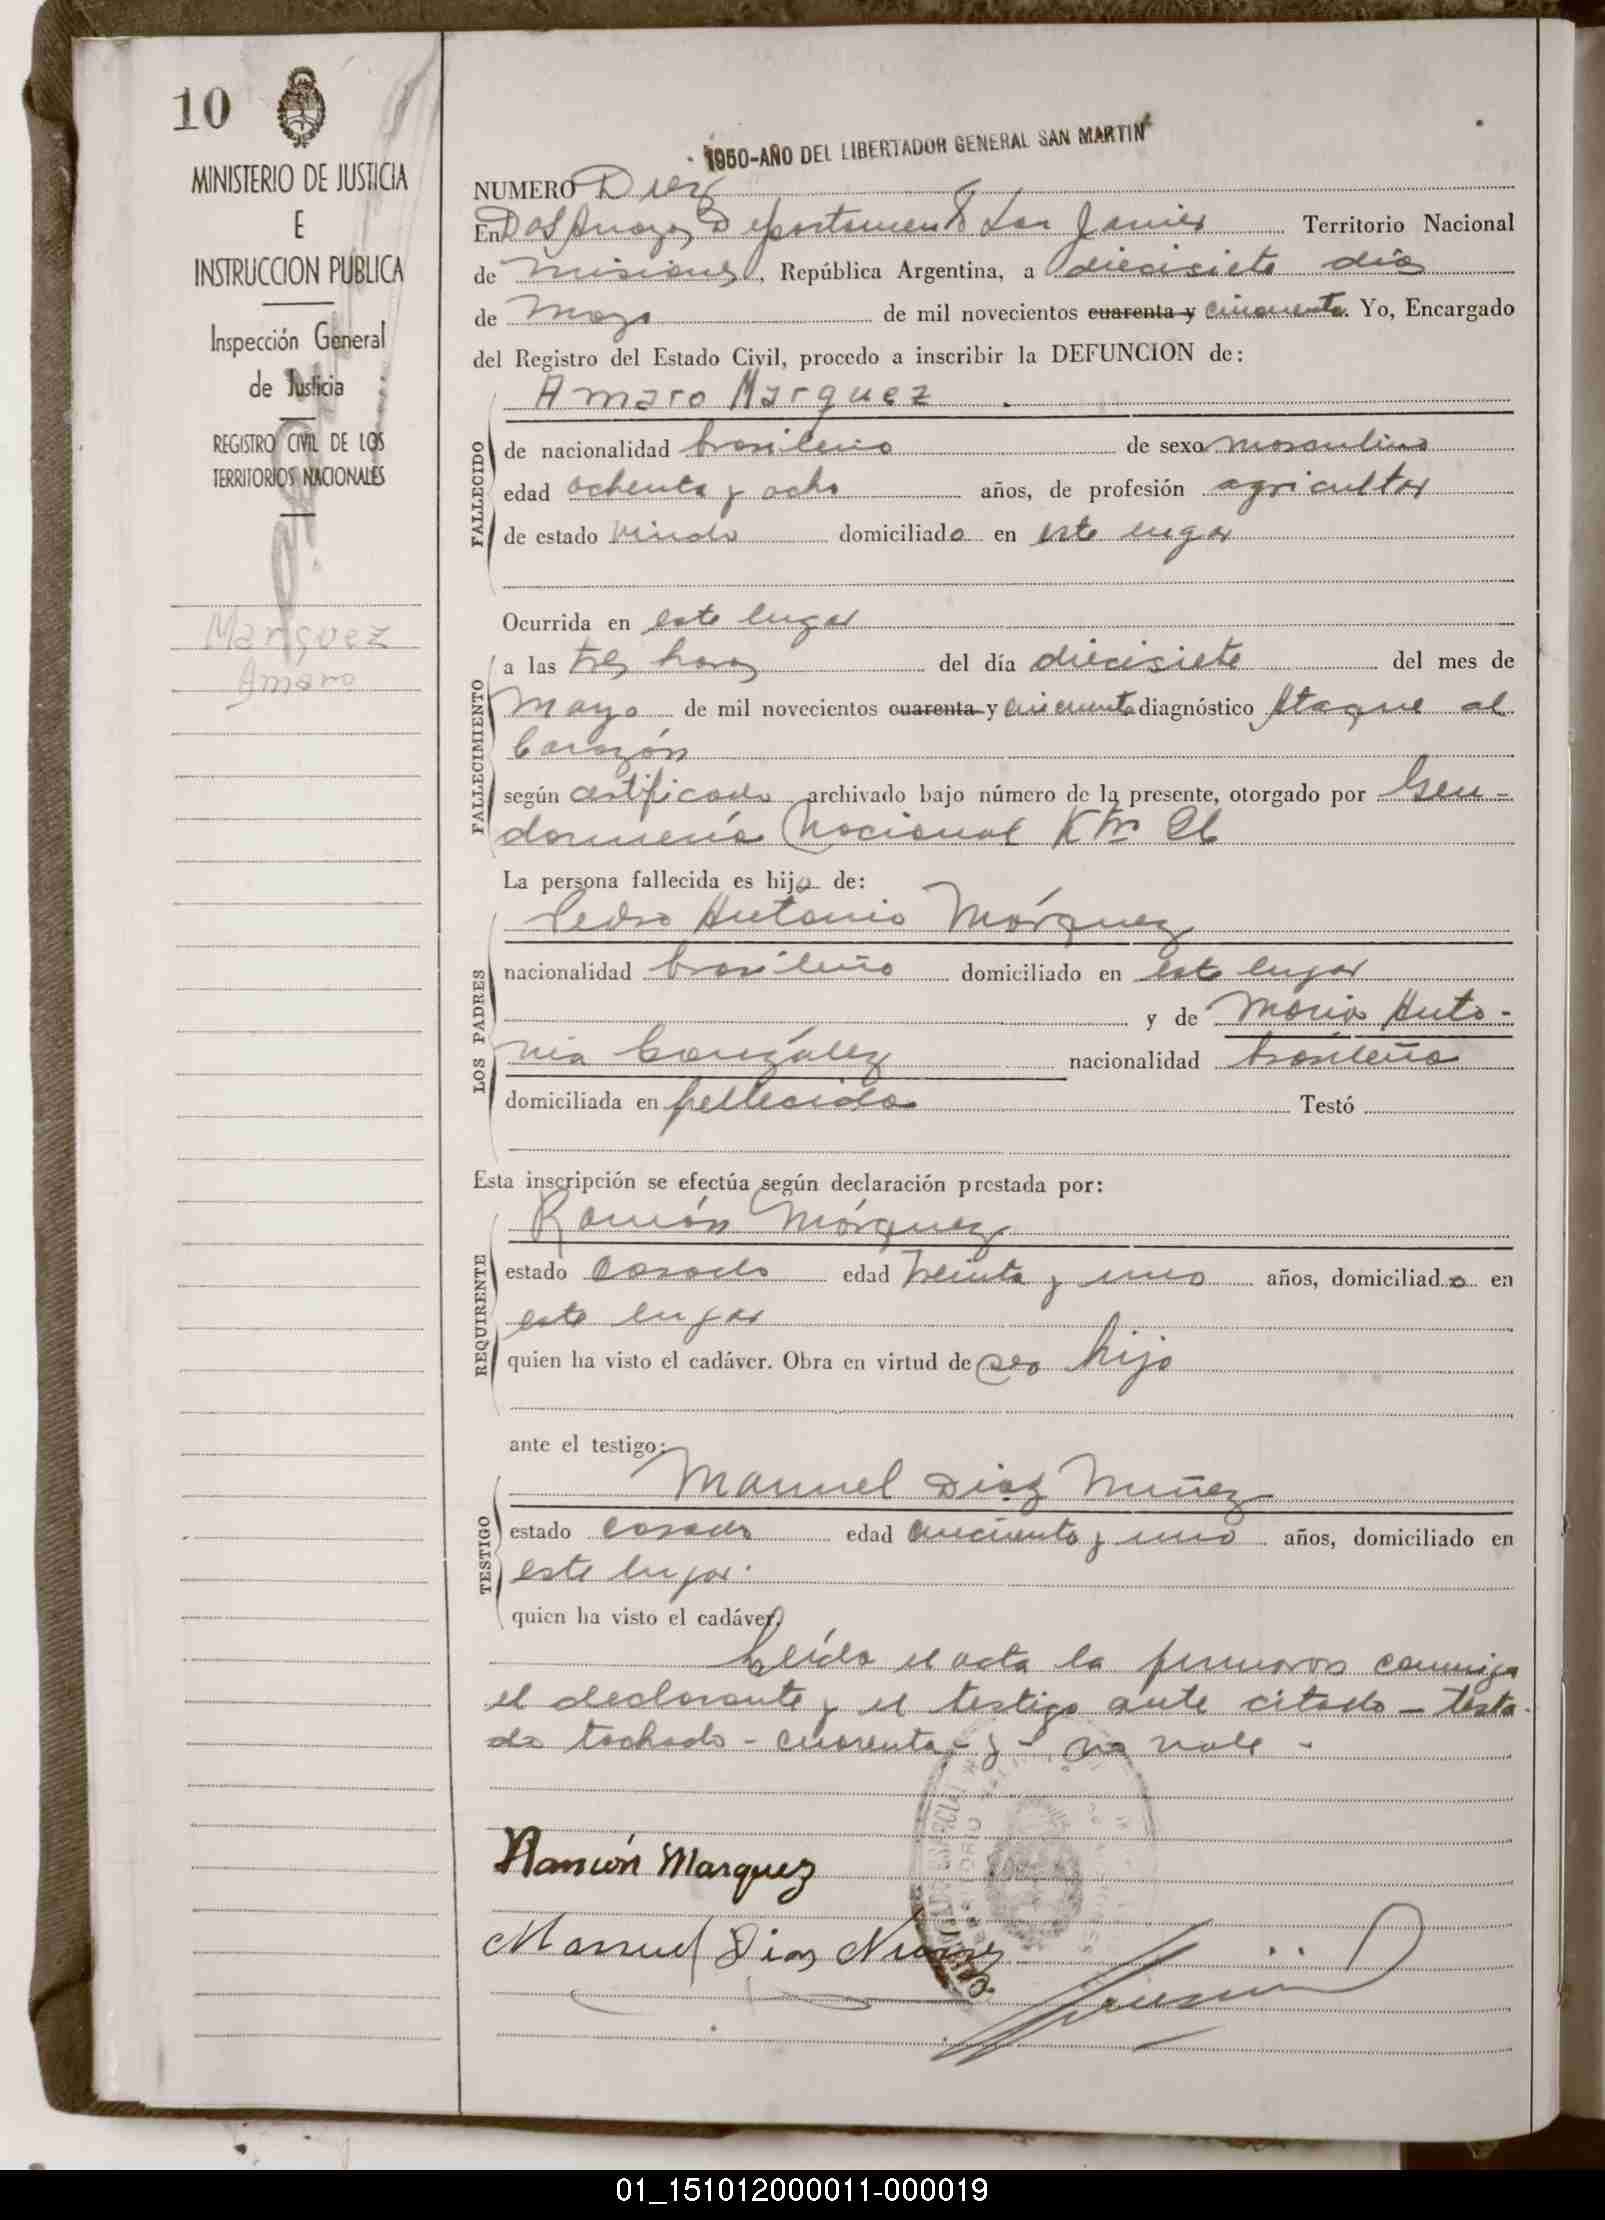 10
MINISTERIO DE JUSTICIA
E
INSTRUCCION PUBLICA
Inspección General
de Justicia
REGISTRO CIVIL DE LOS
TERRITORIOS NACIONALES
Marquez
Amaro
1950-AÑO DEL LIBERTADOR GENERAL SAN MARTIN
NUMERO Diez
En Dos Arroyos Departamento San Javier Territorio Nacional
de Misiones, República Argentina, a diecisiete días
de Mayo de mil novecientos cuarenta y cincuenta. Yo, Encargado
del Registro del Estado Civil, procedo a inscribir la DEFUNCION de:
Amaro Marquez
FALLECIDO
de nacionalidad brasileño de sexo masculino
edad ochenta y ocho años, de profesión agricultor
de estado viudo domiciliado en este lugar
Ocurrida en este lugar
FALLECIMIENTO
a las tres horas del día diecisiete del mes de
Mayo de mil novecientos cuarenta y cincuenta diagnóstico Ataque al
Corazón
según certificado archivado bajo número de la presente, otorgado por Gen-
darmería Nacional Km
La persona fallecida es hijo de:
LOS PADRES
Pedro Antonio Márquez
nacionalidad brasileño domiciliado en este lugar
y de María Anto-
nia González nacionalidad brasileña
domiciliada en fallecida Testó
Esta inscripción se efectúa según declaración prestada por:
REQUIRENTE
Ramón Márquez
estado casado edad treinta y uno años, domiciliado en
este lugar
quien ha visto el cadáver. Obra en virtud de ser hijo
ante el testigo:
TESTIGO
Manuel Diaz Nuñez
estado casado edad cincuenta y uno años, domiciliado en
este lugar.
quien ha visto el cadáver.
Leída el acta la firmaron conmigo
el declarante y el testigo ante citado - testa-
do tachado - cuarenta - y - no vale -
Ramón Marquez
Manuel Dias Nuñez
01_151012000011-000019